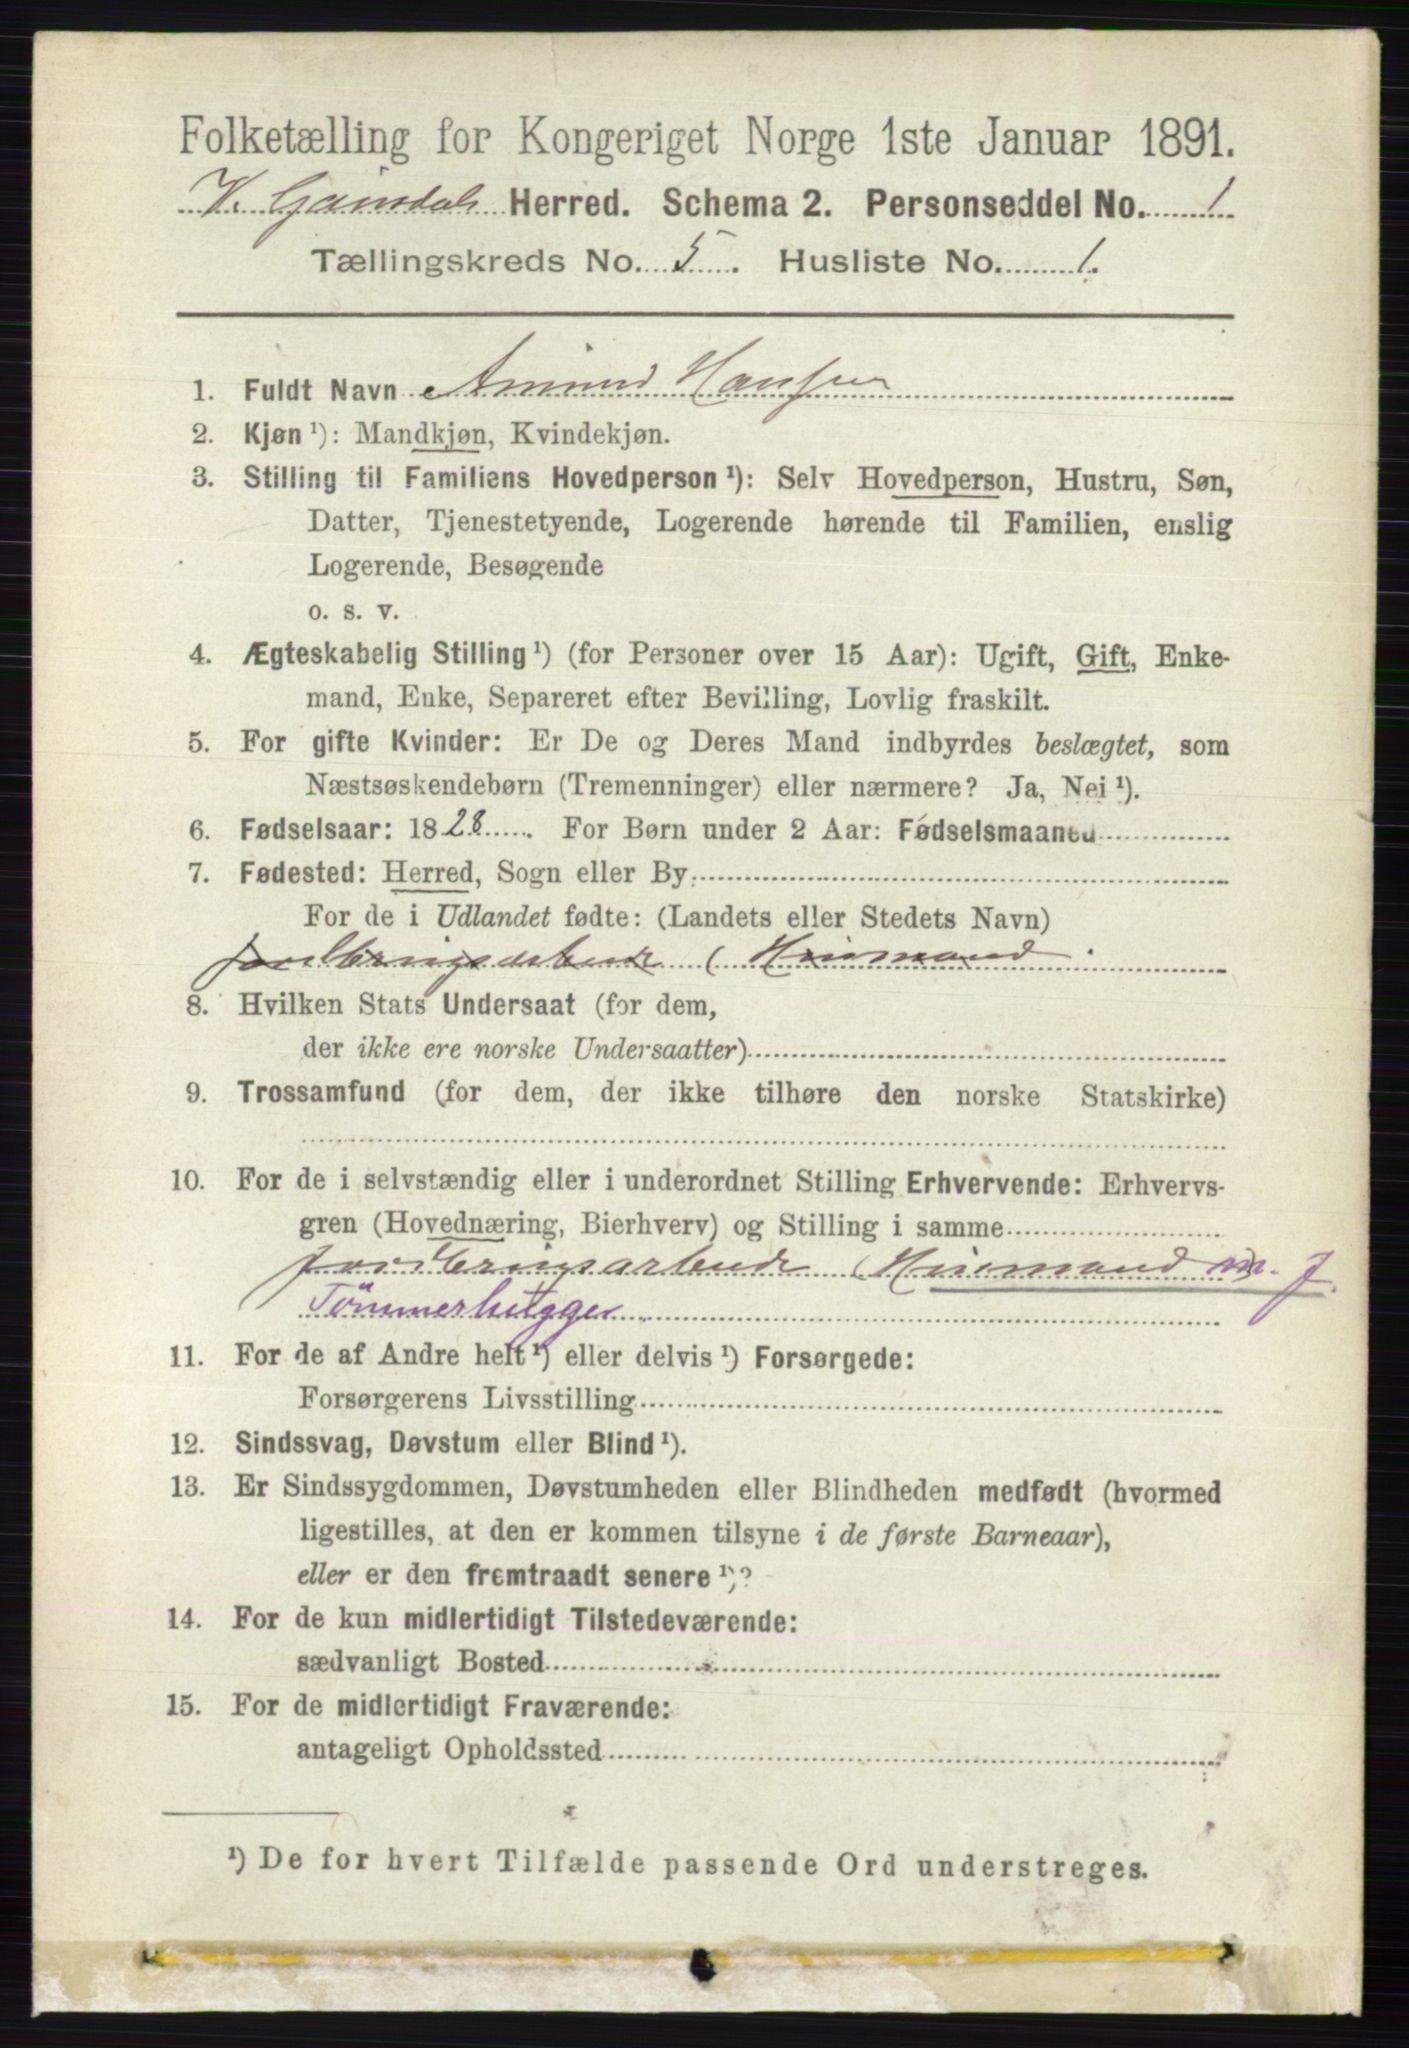 Folketælling for Kongeriget Norge 1ste Januar 1891.
V. Gausdal Herred. Schema 2. Personseddel No. 1
Tællingskreds No. 5. Husliste No. 1.
1. Fuldt Navn Amund Hansen
2. Kjøn ¹): Mandkjøn, Kvindekjøn.
3. Stilling til Familiens Hovedperson ¹): Selv Hovedperson, Hustru, Søn,
Datter, Tjenestetyende, Logerende hørende til Familien, enslig
Logerende, Besøgende
o. s. v.
4. Ægteskabelig Stilling ¹) (for Personer over 15 Aar): Ugift, Gift, Enke-
mand, Enke, Separeret efter Bevilling, Lovlig fraskilt.
5. For gifte Kvinder: Er De og Deres Mand indbyrdes beslægtet, som
Næstsøskendebørn (Tremenninger) eller nærmere? Ja, Nei ¹).
6. Fødselsaar: 1828. For Børn under 2 Aar: Fødselsmaaned
7. Fødested: Herred, Sogn eller By
For de i Udlandet fødte: (Landets eller Stedets Navn)
Jordbrugsarbeide (Husmand
8. Hvilken Stats Undersaat (for dem,
der ikke ere norske Undersaatter)
9. Trossamfund (for dem, der ikke tilhøre den norske Statskirke)
10. For de i selvstændig eller i underordnet Stilling Erhvervende: Erhvervs-
gren (Hovednæring, Bierhverv) og Stilling i samme
Jordbrugsarbeide (Husmand m. J.
Tömmerhugger
11. For de af Andre helt ¹) eller delvis ¹) Forsørgede:
Forsørgerens Livsstilling
12. Sindssvag, Døvstum eller Blind ¹).
13. Er Sindssygdommen, Døvstumheden eller Blindheden medfødt (hvormed
ligestilles, at den er kommen tilsyne i de første Barneaar),
eller er den fremtraadt senere ¹)?
14. For de kun midlertidigt Tilstedeværende:
sædvanligt Bosted
15. For de midlertidigt Fraværende:
antageligt Opholdssted
¹) De for hvert Tilfælde passende Ord understreges.